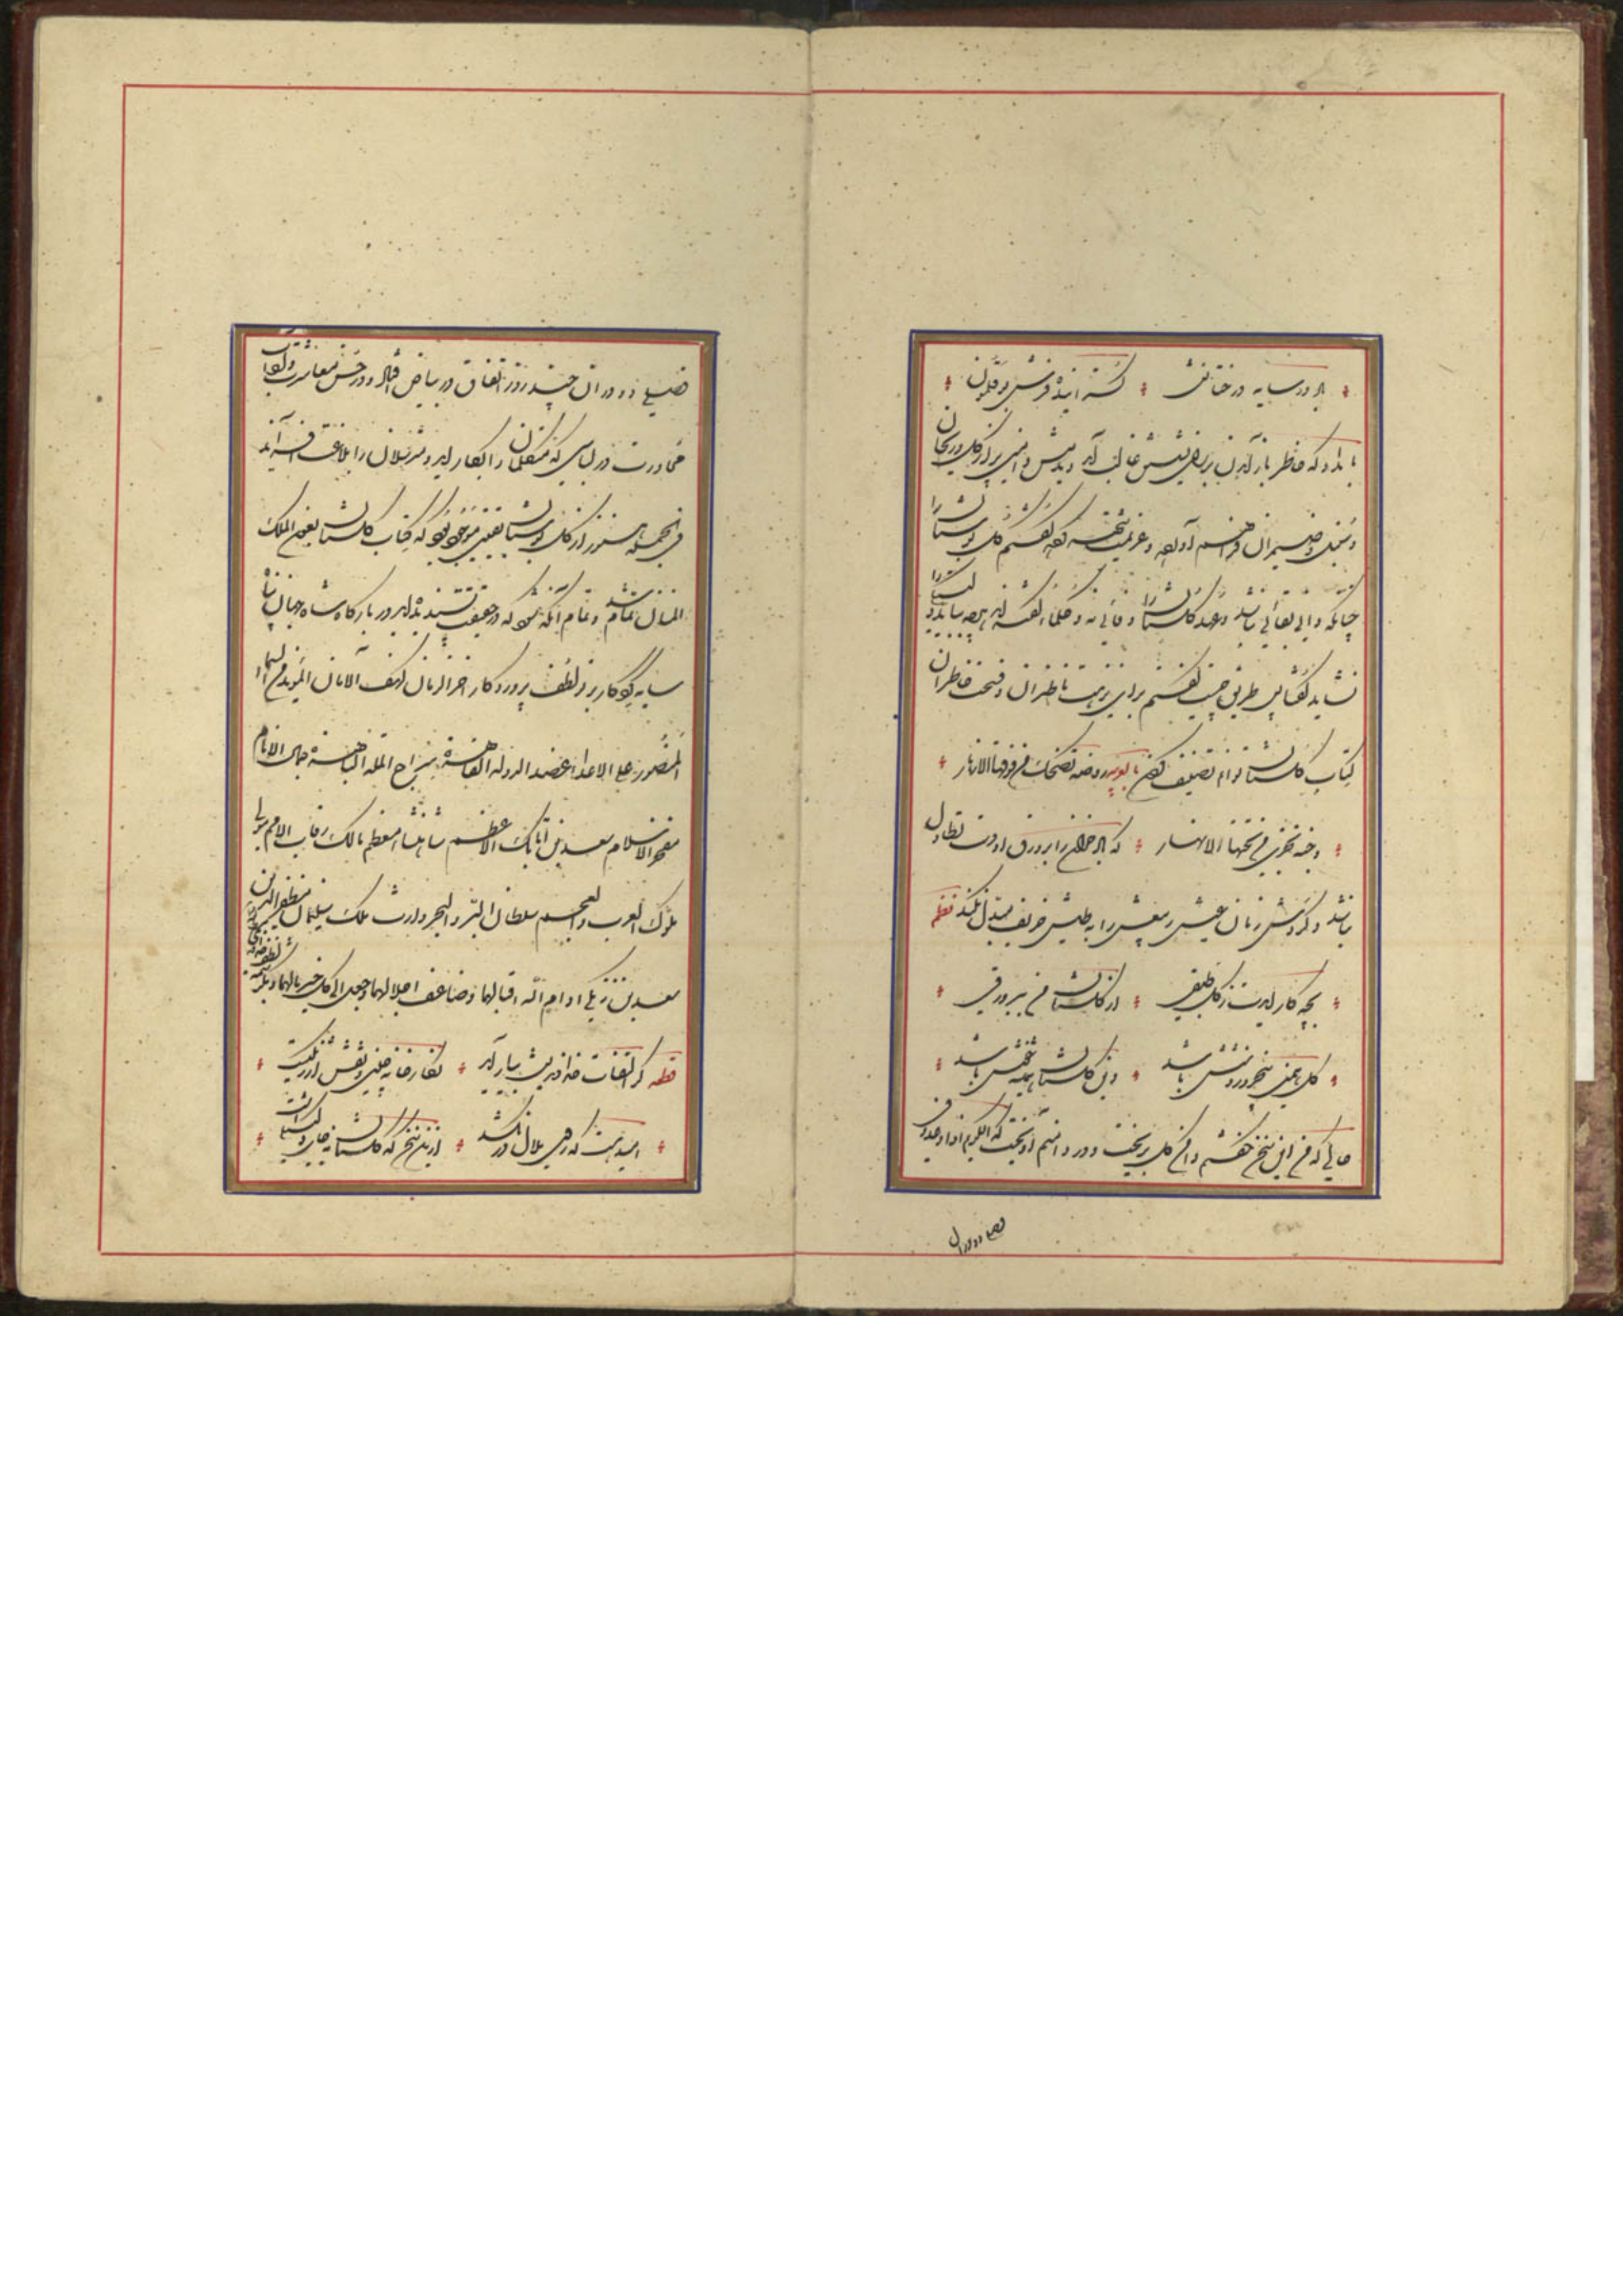 باد در سایه درختانش گسترانیده فرش بوقلمون
بامداد که خاطر باز آمدن بر رای نشستن غالب آمد دیدمش دامنی پر از گل و ریحان
و سنبل و ضیمران فراهم آورده و عزیمت شهر کرده گفتم گل بوستان را
چنانکه دانی بقائی نباشد و عهد گلستان را وفائی نه و حکما گفته اند هرچه نپاید دلبستگی را
نشاید گفتا پس طریق چیست گفتم برای نزهت ناظران و فسحت حاضران
کتاب گلستان توانم تصنیف کردن
که باد خزان را بر ورق او دست تطاول
نباشد و گردش زمان عیش ربیعش را به طیش خریف مبدل نکند نظم
بچه کار آیدت ز گل طبقی از گلستان من ببر ورقی
گل همین پنج روز و شش باشد وین گلستان همیشه خوش باشد
حالی که من این سخن گفتم دامن گل بریخت و در دامنم آویخت که الکریم اذا وعد وفی
فصلی دو در آن
فصلی دو در آن چند روز اتفاق در بیاض افتاد در حسن معاشرت و آداب
محاورت در لباسی که متکلمان را بکار آید و مترسلان را بلاغت افزاید
فی الجمله هنوز از گل بوستان بقیتی موجود بود که کتاب گلستان بعون الملک
المنان تمام شد و تمام آنگه شود که در حقیقت پسندیده آید در بارگاه شاه جهان پناه
سایه کردگار پرتو لطف پروردگار ذخر الزمان کهف الامان المؤید من السماء
المنصور علی الاعداء عضد الدوله القاهرة سراج المله الباهرة جمال الانام
مفخر الاسلام سعد بن اتابک الاعظم شاهنشاه معظم مالک رقاب الامم مولی
ملوک العرب و العجم سلطان البر و البحر وارث ملک سلیمان مظفر الدین
سعد بن زنگی ادام الله اقبالهما و ضاعف اجلالهما و جعل الی کل خیر مآلهما
قطعه گر التفات خداوندیش بیاراید نگارخانه چینی و نقش ارژنگیست
امید هست که روی ملال در نکشد ازین سخن که گلستان نه جای دلتنگیست